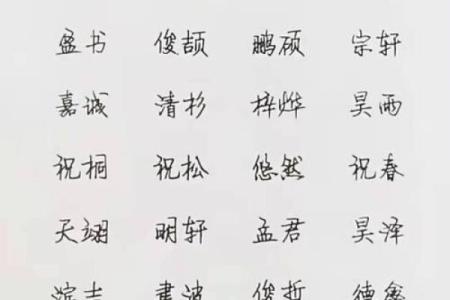 盈书 俊颉 鹏硕 宗轩
嘉诚 清杉 梓烨 昊雨
祝桐 祝松 悠然 祝春
天翊 明轩 孟君 昊泽
滨志 書波 俊哲 德鑫